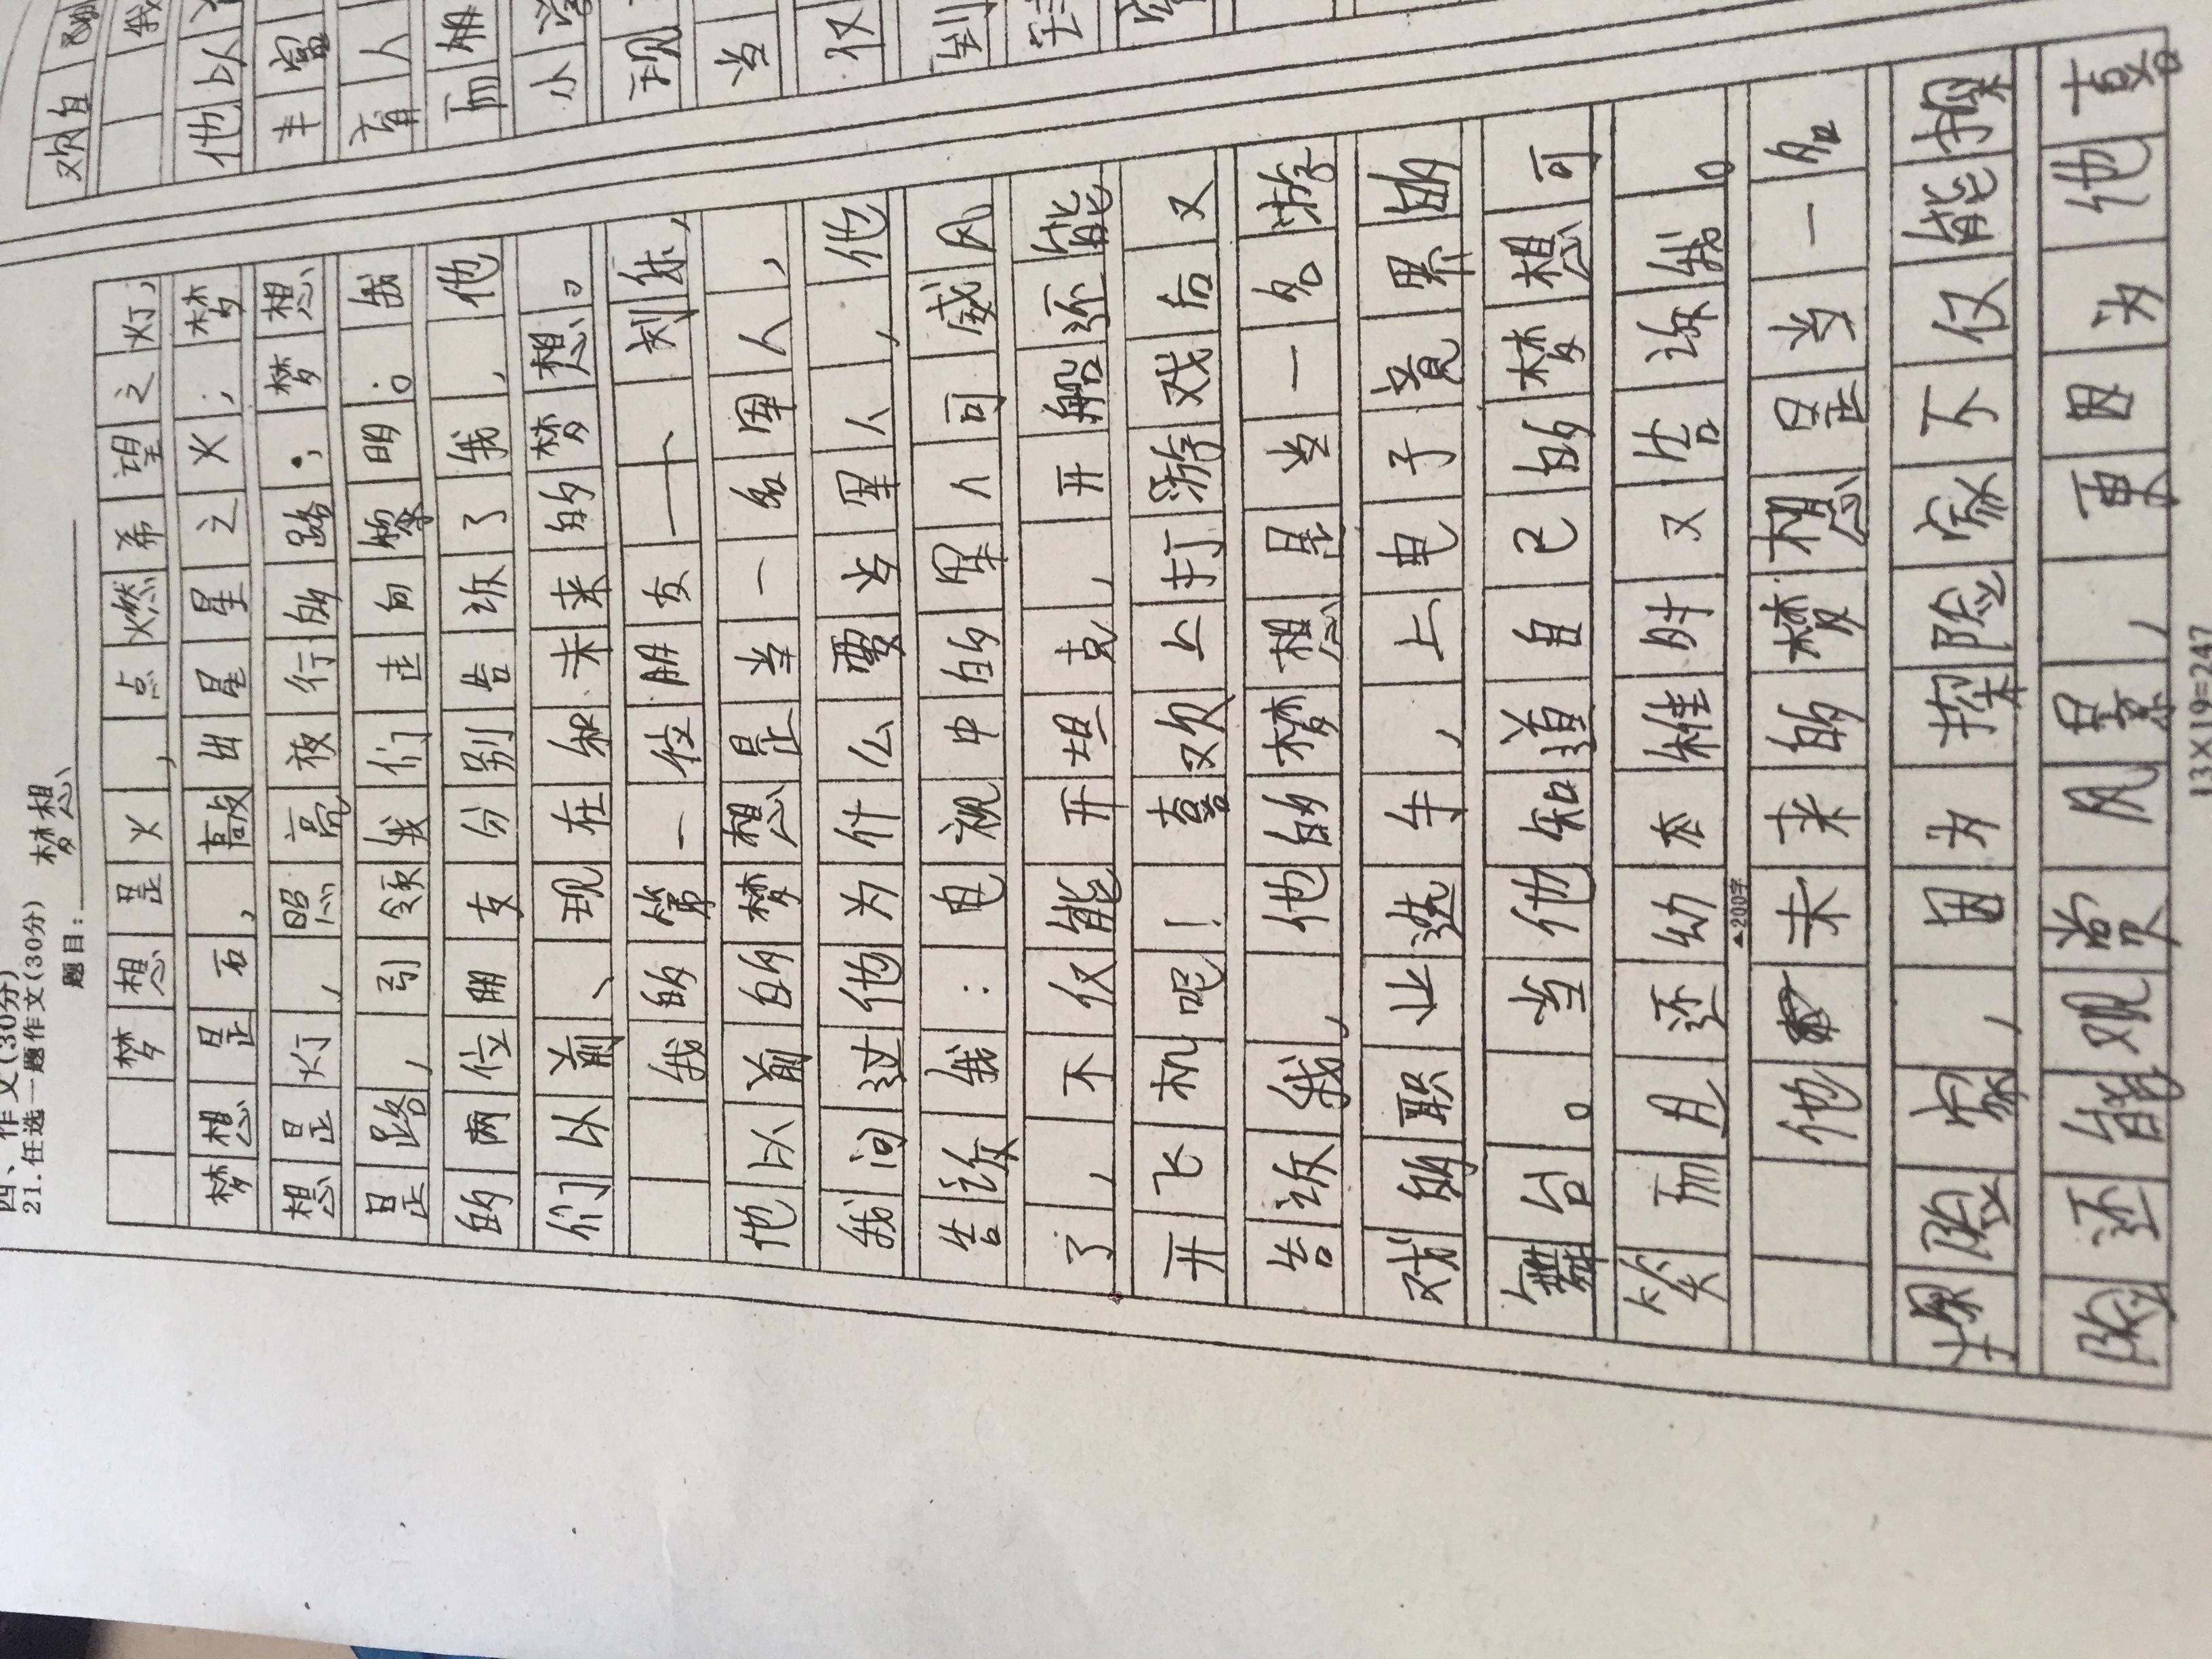 四、作文(30分)
21.任选一题作文(30分)
题目:梦想
梦想是火,点燃希望之灯,
梦想是石,敲出星星之火;梦
想是灯,照亮夜行的路;梦想
是路,引领我们走向黎明。我
的两位朋友分别告诉了我,他
们以前、现在和未来的梦想。
我的第一位朋友——刘
他以前的梦想是当一名军人,
我问过他为什么要当军人,他
告诉我:电视中的军人可威风
了,不仅能开坦克,开船还能
开飞机呢!喜欢上打游戏后又
告诉我,他的梦想是当一名游
戏的职业选手,上电子竞累的
舞台。当他知道自己的梦想可
笑而且还幼稚时又告诉我。
▲200字
他未来的梦想是当一名
探险家,因为探险家不仅能探
险还能观赏风景,更因为他喜
13×19=247
欢自
我
他以
丰富
育人
而朋
小学
现
当
仅
到